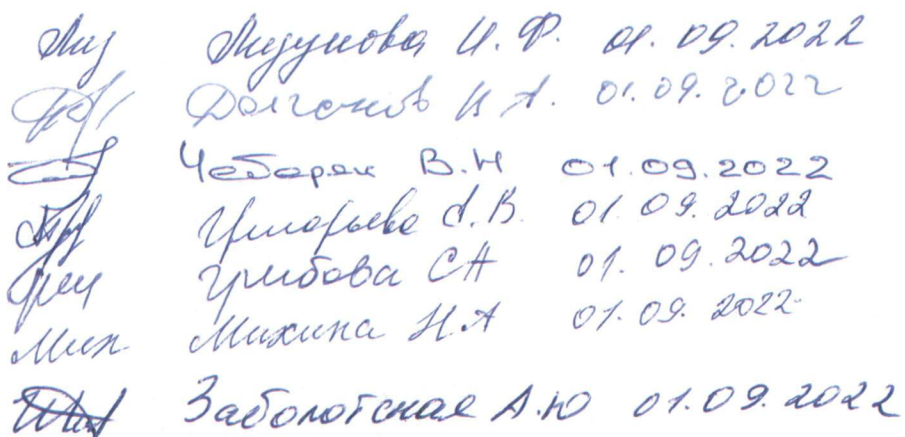 Лиз Лизунова И.Ф. 01.09.2022
Долганов И.А. 01.09.2022
Чеборяк В.Н 01.09.2022
Григорьева А.В. 01.09.2022
Гри Грибова СА 01.09.2022
Мих Михина Н.А 01.09.2022
Заболотская А.Ю 01.09.2022